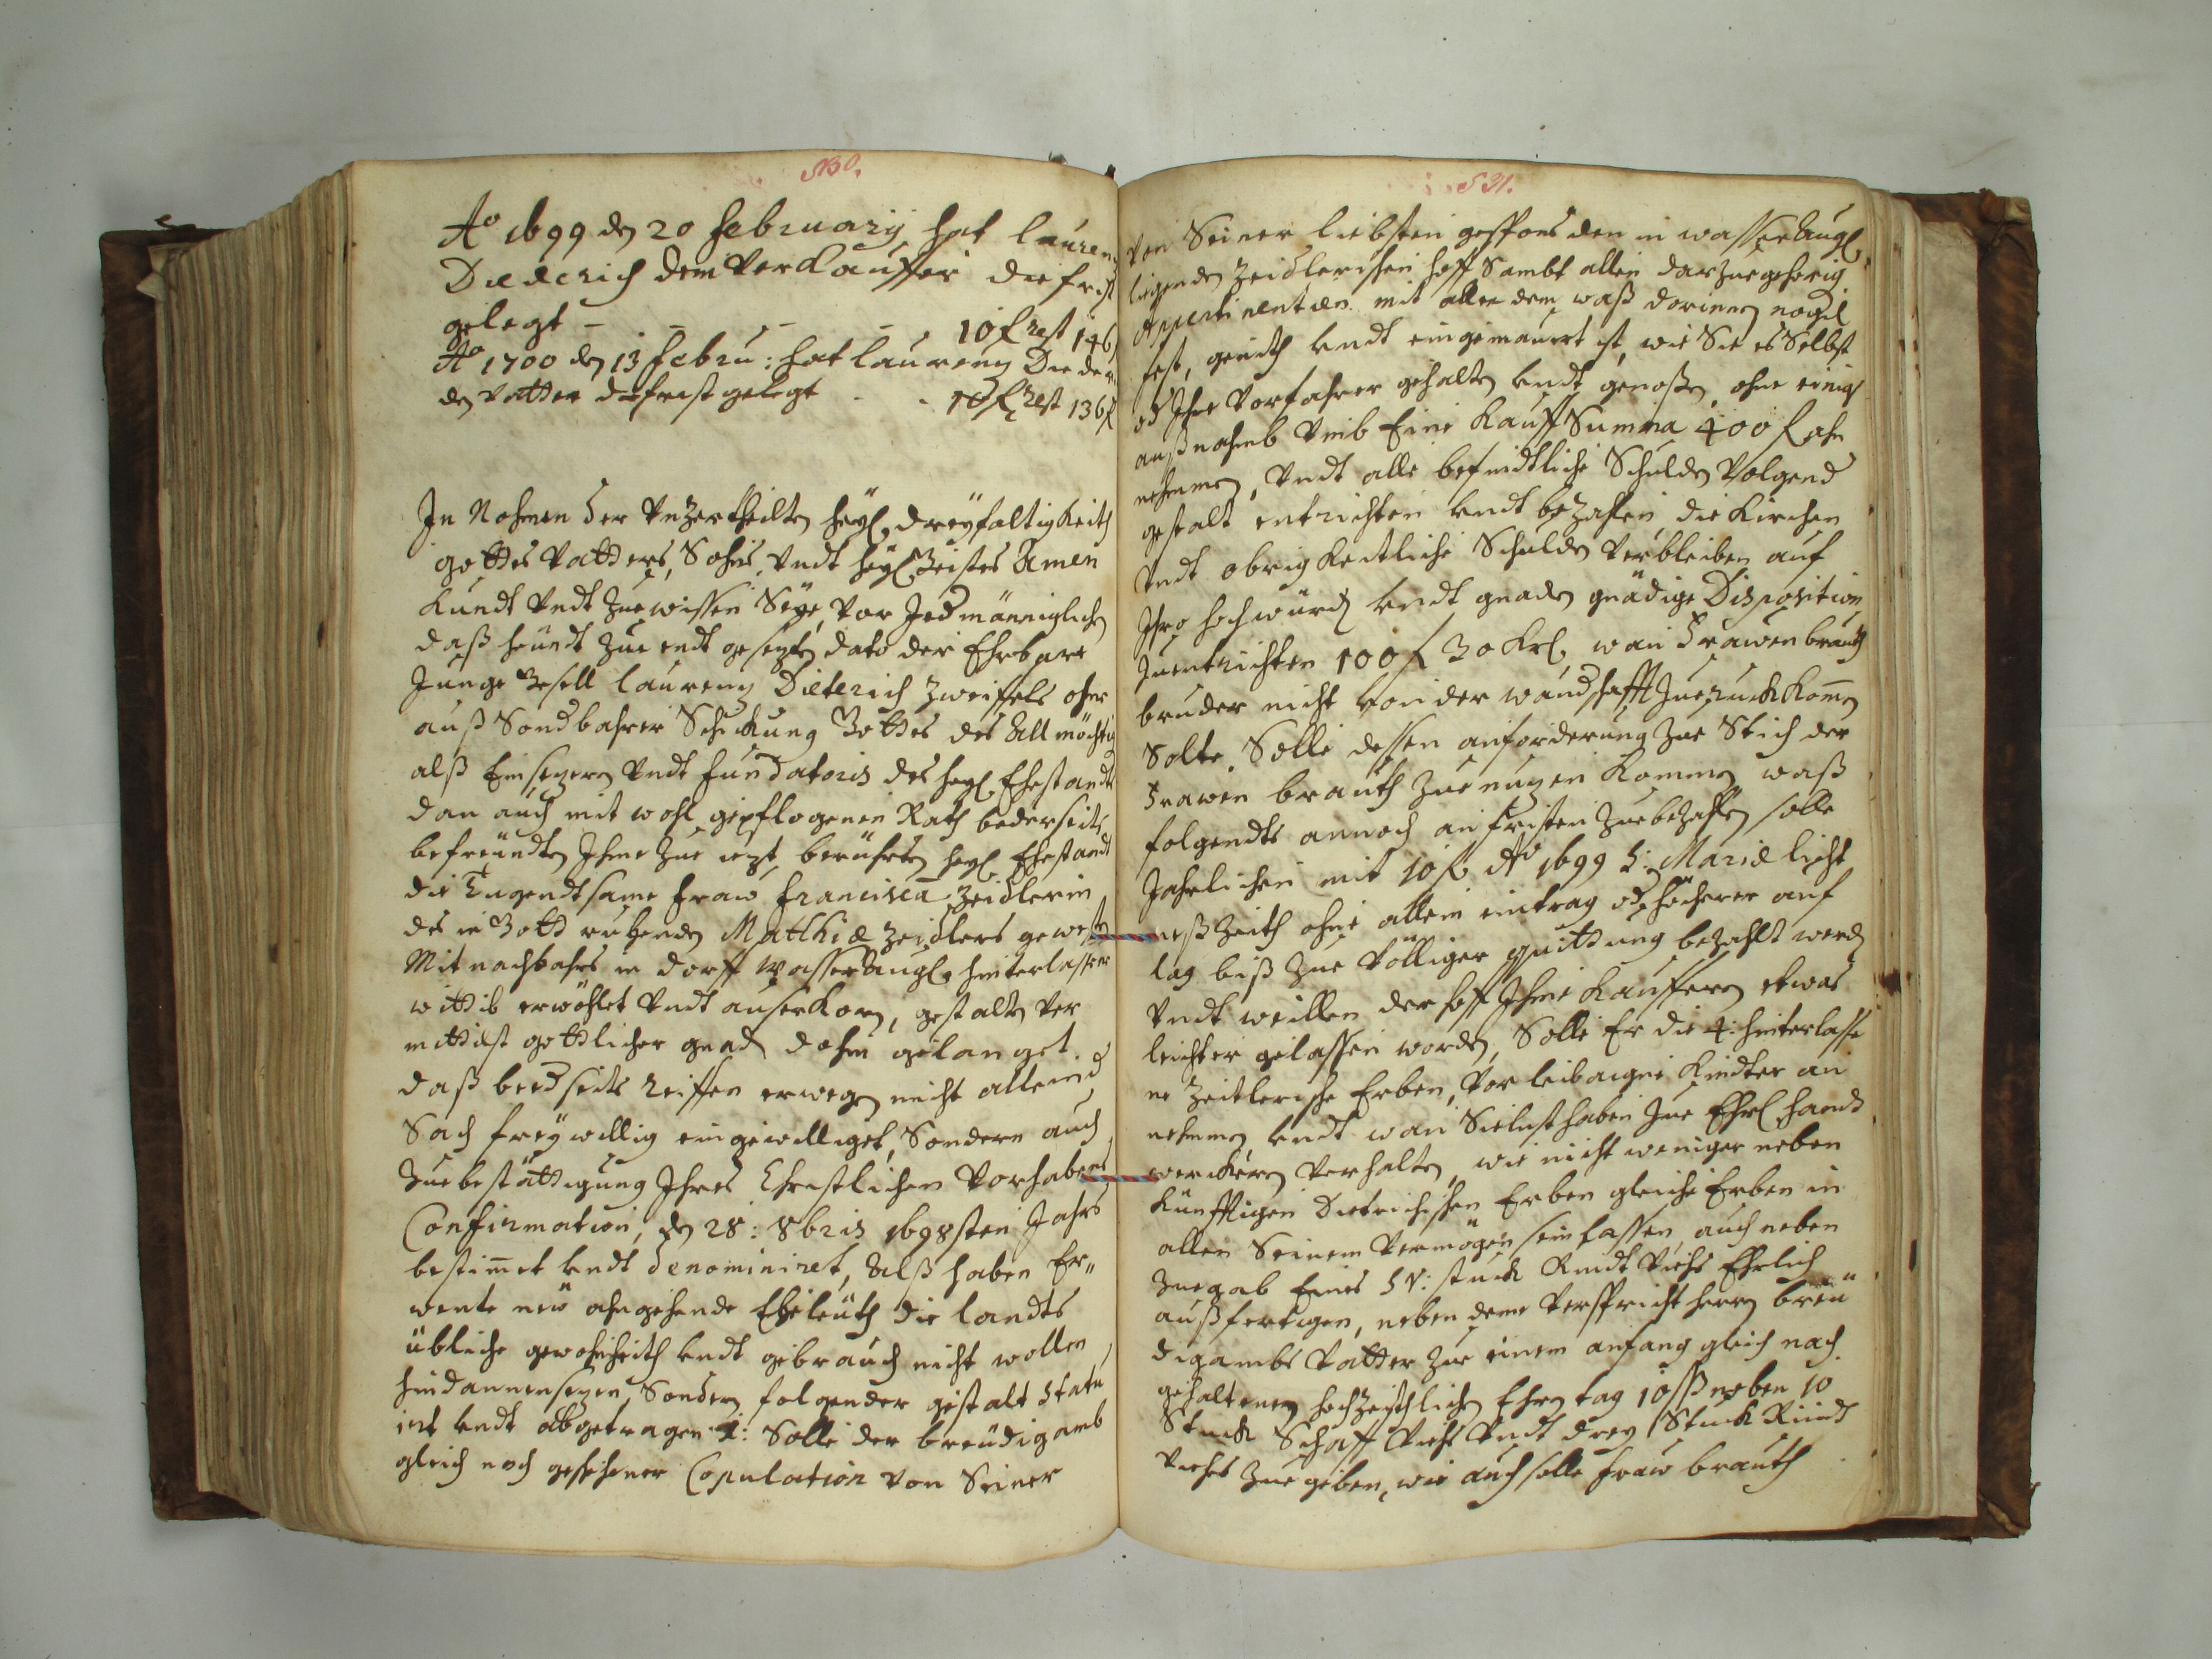 530.
Ao 1699 den 20 February hat Lauren
Diederich dem Verkauffer die frist
gelegt - - - - 10 f rest 146
Ao 1700 den 13 Febru: hat Laurenz Dieder
den Vatter die frist gelegt - - 10 f rest 136 f
In Nahmen der Unzertheilten heyl. Dreyfaltigkeith
gottes Vatters, Sohns, Undt heyl. Geistes Amen
Kundt Undt Zue wissen Seye, Vor Jedmänniglichen
daß heundt Zue endt gesezten dato der Ehrbare
Junge Gesell Laurenz Dieterich Zweiffels ohne
auß Sondbahrer Schickung Gottes des Allmächtig
alß Einsezern Undt Fundatoris des heyl. Ehestandt
dan auch mit wohl gepflogenen Rath bederseits
befreundten Ihme Zue iezt berührten heyl. Ehestandt
die Tugendtsame Fraw Francisca Zeidlerin
des in Gott ruhenden Matthiæ Zeidlers gewesten
Mitnachbahrs in dorff Wasseraugl. hinterlassene
wittib erwöhlet Undt auserkorn, gestalten Ver
mittelst gottlicher gnad dahin gelanget.
daß beedseits reiffen erwegen nicht allein d
Sach freywillig eingewilliget, Sondern auch
Zue bestättigung Ihres Christlichen Vorhabens
Confirmation, den 28: 8bris 1698sten Jahrs
bestimet undt denominiret, Alß haben Er„
wente new ahngehende Eheleuth die landts
übliche gewohnheith undt gebrauch nicht wollen
hindannensezen, Sondern folgender gestalt Statu
irt undt abgetragen 1: Solle der breudigamb
gleich nach geschehener Copulation Von Seiner
531.
Von Seiner liebsten gespons den in Wasseraugl.
liegenden Zeidlerischen hoff Sambt allen darzue gehörig
Appertinentien mit allen dem waß darinnen nagel
fest, genith undt eingemauert ist, wie Sie es Selbst
od Ihre Vorfahrer gehalten undt genoßen, ohne einig
außnahmb Umb Eine Kauff Summa 400 f ahn
nehmen, Undt alle befindtliche Schulden Volgend
gestalt entrichten undt bezahlen, die Kirchen
Undt obrigkeitliche Schulden Verbleiben auf
Ihro hochwürd undt gnaden gnädige Disposition
Zuentrichten 100 f 30 Krl. wan Frawen brauth
bruder nicht von der wandschafft Zueruckkomen
Solte. Solle dessen anforderung Zue Stich der
Frawen brauth Zue nuzen Kommen waß
folgendts annoch an fristen Zue bezahlen solle
Jahrlichen mit 10 f Ao 1699 S: Mariæ licht
meß Zeith ohne allem eintrag od höcherer auf
lag biß Zue Völliger quittung bezahlt werd
Undt weillen der hoff Ihme Kauffern etwas
leichter gelassen worden, Solle Er die 4: hinterlasse
ne Zeitlerische Erben, Vor leibaigne Kindter an
nehmen undt wan Sie lust haben Zue Ehrl. handt
werckern Verhalten, wie nicht weniger neben
Künfftigen Dietrichschen Erben gleiche Erben in
allen Seinem Vermögen sein lassen, auch neben
Zuegab Eines stuck Rindt Viehs Ehrlich
außfertigen, neben deme Verspricht herrn breu
digambs Vatter Zue einem anfang gleich nach
gehaltenen hochzeithlichen Ehrn tag 10 neben 10
Stuck Schaff Viehs Undt drey Stuck Rindt
Viehes Zue geben, wie auch solle Fraw brauth